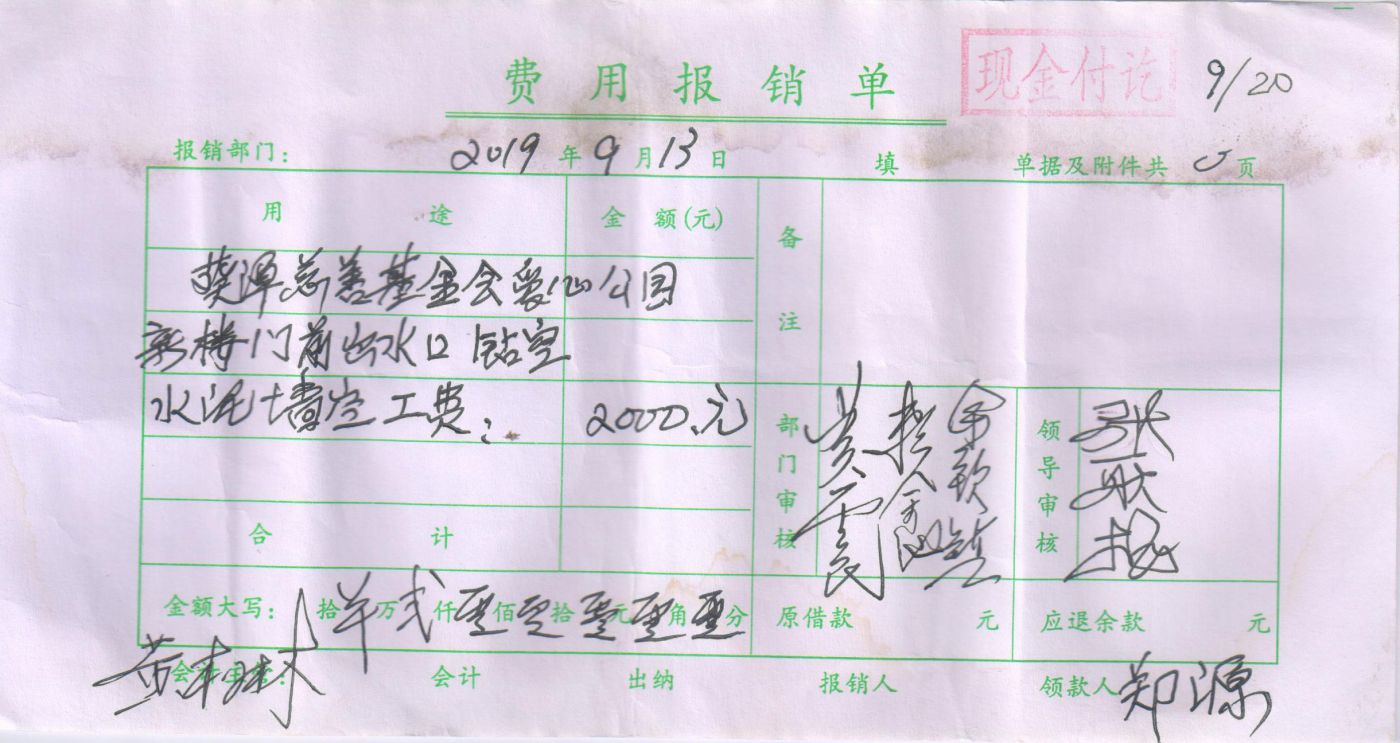 费用报销单
现金付讫
9/20
报销部门： 2019年9月13日 填 单据及附件共 页
用途 金额(元) 备注
葵潭慈善基金会爱心公园
新楼门前出水口钻空
水泥墙空工费： 2000.元
部门审核 领导审核
合计
金额大写： 拾 万弍仟零佰零拾零元零角零分 原借款 元 应退余款 元
会计 出纳 报销人 领款人 郑源